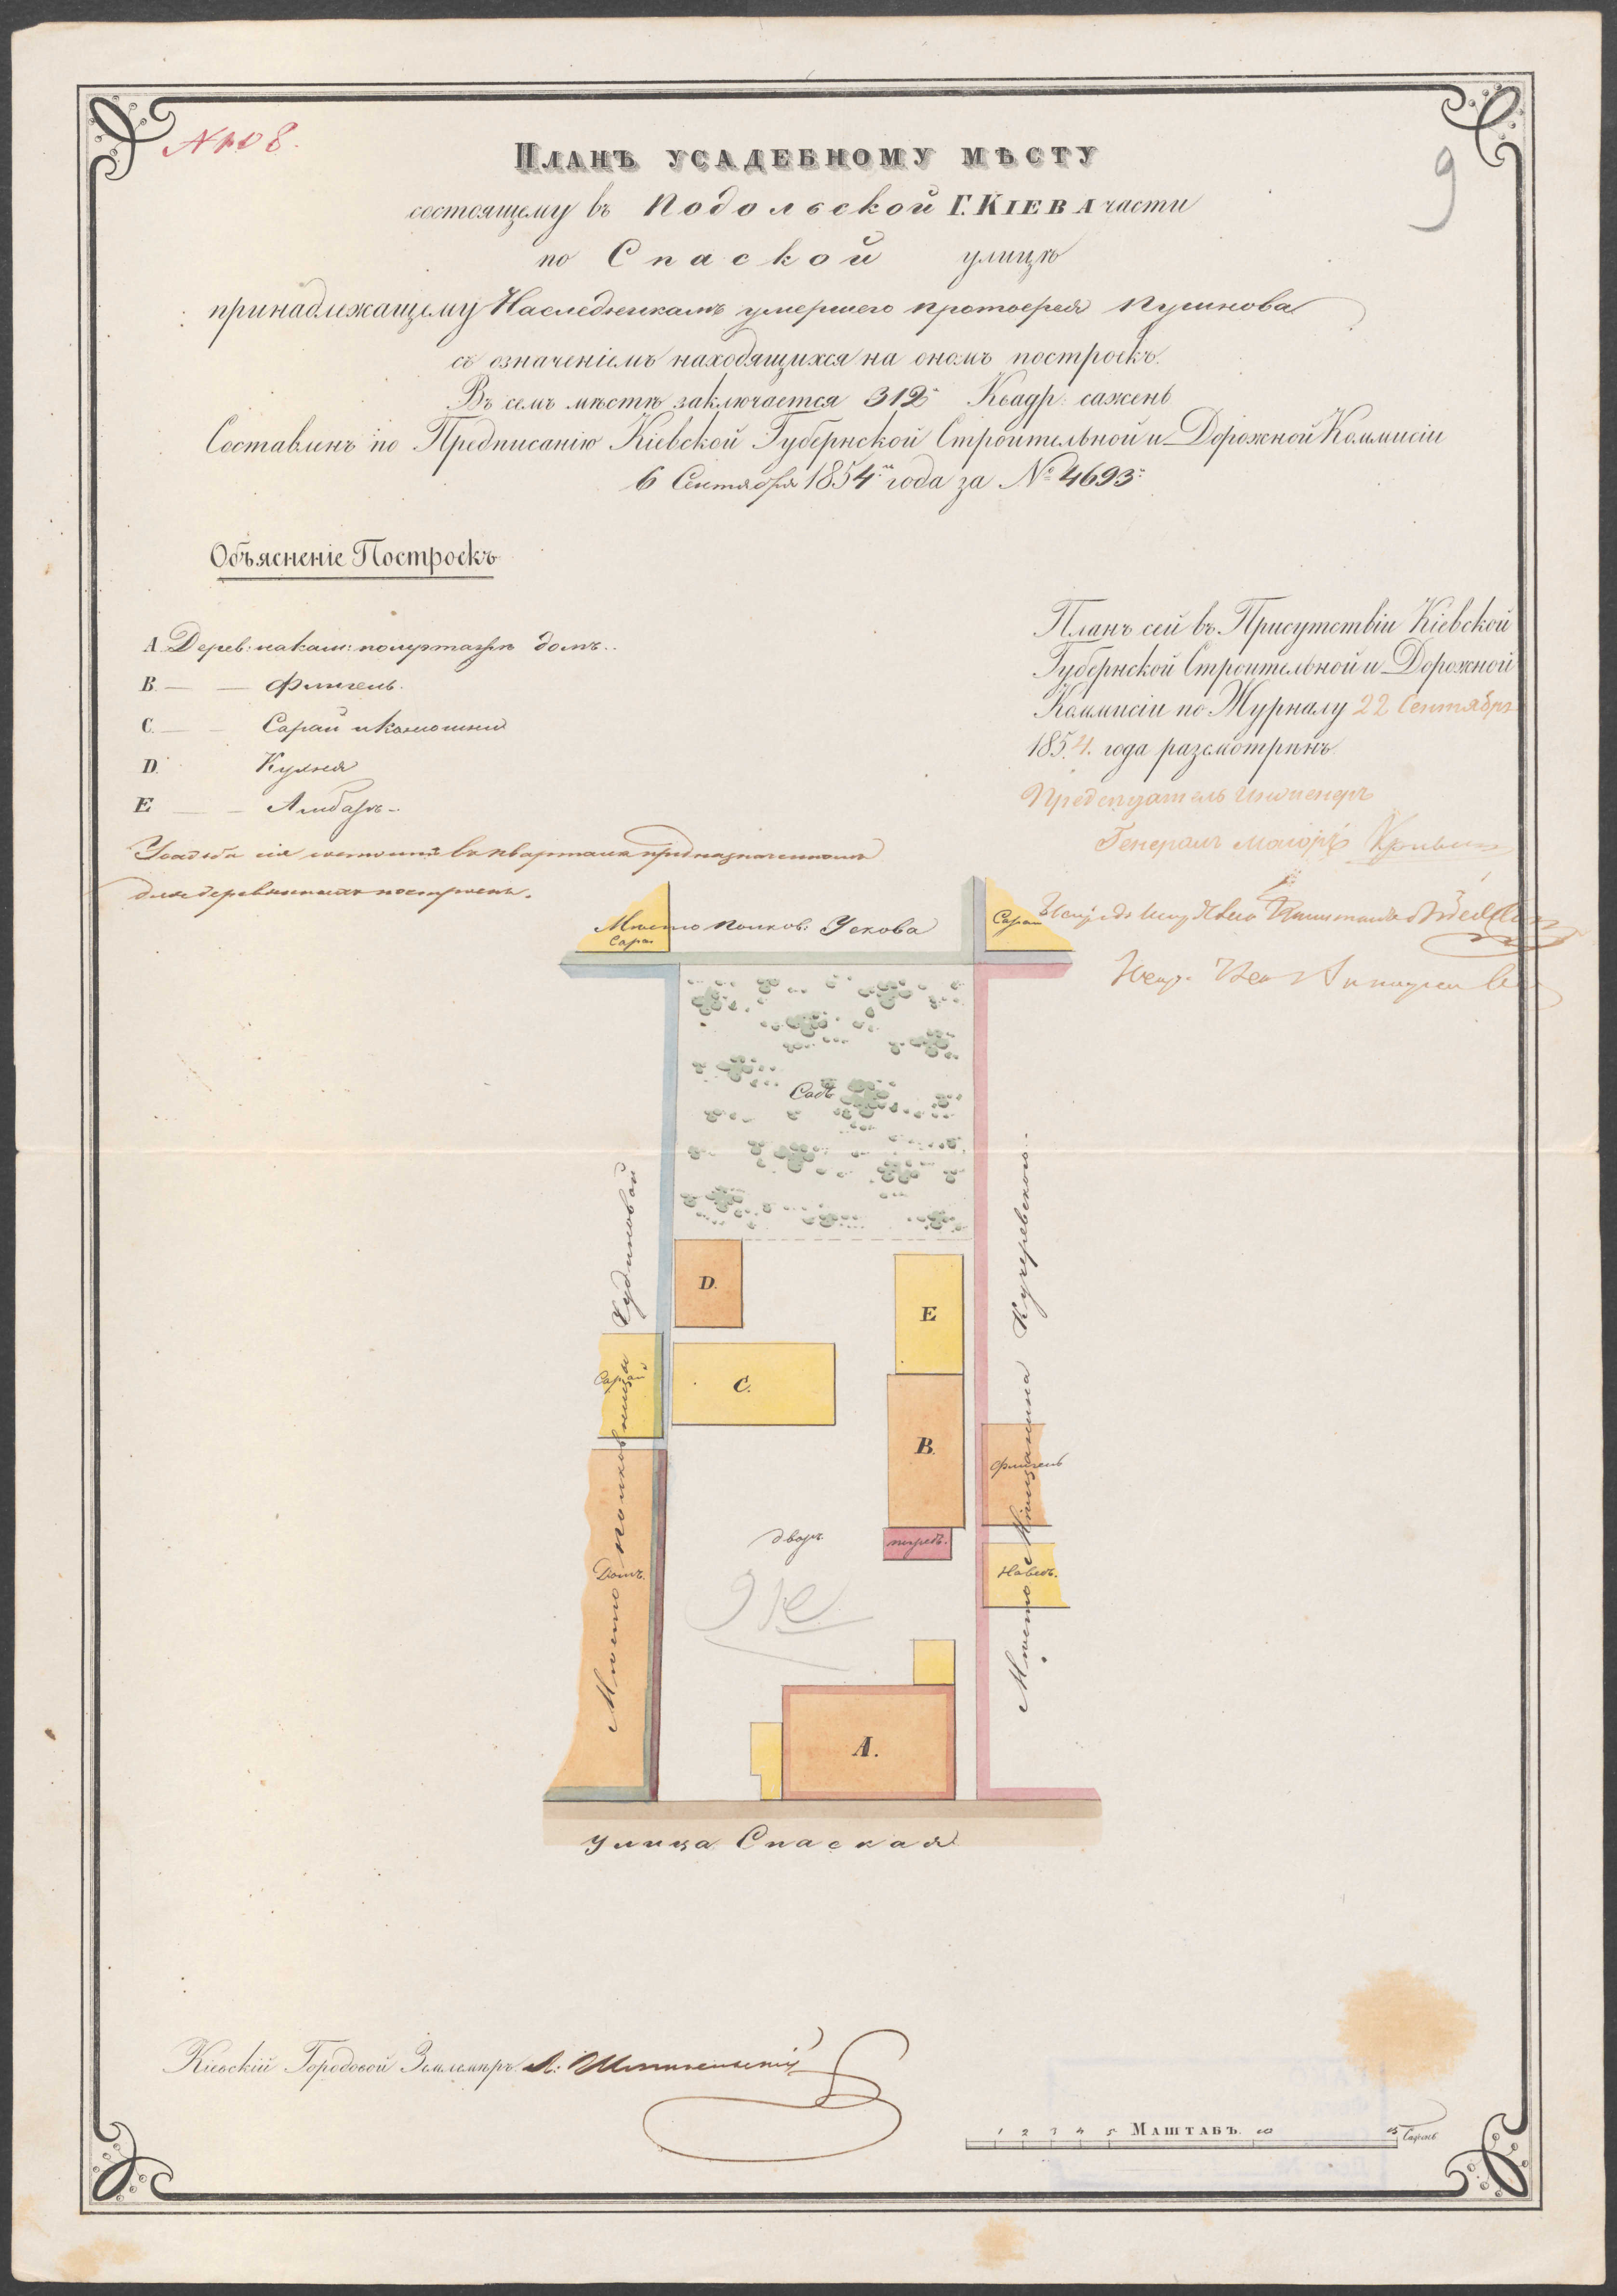 N 108.
9
Планъ усадебному мѣсту
состоящему въ Подольской Г. Кіева части
по Спаской улицѣ
принадлежащему Наследникамъ умершего протоерея
съ означеніемъ находящихся на ономъ построекъ.
Въ семъ мѣстѣ заключается 312 Квадр: сажень
Составленъ по Предписанію Кіевской Губернской Строительной и Дорожной Коммисіи
6 Сентября 1854 года за № 4693
Объясненіе Построекъ
A. Дерев: на кам: полуэтажѣ домъ.
B. — — Флигель.
C. — — Сарай и конюшни
D. Кухня
E — — Амбаръ
Усадьба сія состоитъ въ кварталѣ предназначенномъ
для деревянныхъ построекъ.
Планъ сей въ Присутствіи Кіевской
Губернской Строительной и Дорожной
Коммисіи по Журналу 22 Сентября
1854. года разсмотрѣнъ.
Председатель Инженеръ
Генералъ маіоръ
Место полков: Ускова
Сарай
Сарай
Садъ
D.
E
C.
B.
A.
Сарай
Домъ.
Место полковницы
дворъ
погребъ.
Флигель
Навесъ.
Место Мещанина Кучеревского
Улица Спаская
Кіевскій Городовой Землемѣръ
1 2 3 4 5 Маштабъ. 10 15 Сажень